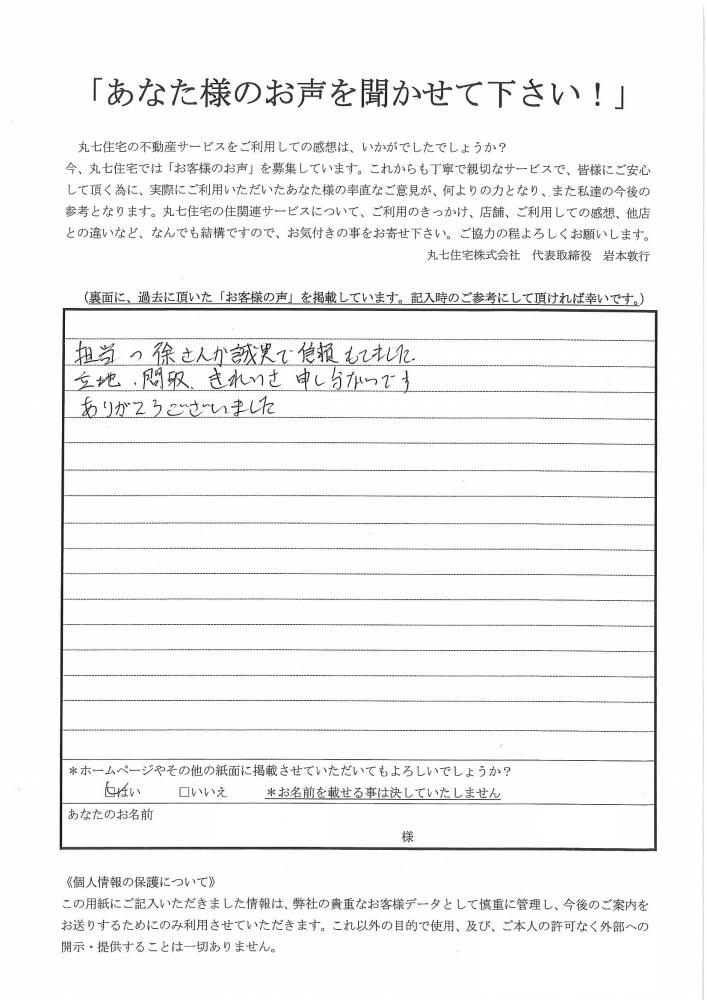 「あなた様のお声を聞かせて下さい！」
丸七住宅の不動産サービスをご利用しての感想は、いかがでしたでしょうか？
今、丸七住宅では「お客様のお声」を募集しています。これからも丁寧で親切なサービスで、皆様にご安心
して頂く為に、実際にご利用いただいたあなた様の率直なご意見が、何よりの力となり、また私達の今後の
参考となります。丸七住宅の住関連サービスについて、ご利用のきっかけ、店舗、ご利用しての感想、他店
との違いなど、なんでも結構ですので、お気付きの事をお寄せ下さい。ご協力の程よろしくお願いします。
丸七住宅株式会社　代表取締役　岩本敦行
（裏面に、過去に頂いた「お客様の声」を掲載しています。記入時のご参考にして頂ければ幸いです。）
担当の徐さんが誠実で信頼もてました。
立地、間取、きれいさ 申し分ないです
ありがとうございました
＊ホームページやその他の紙面に掲載させていただいてもよろしいでしょうか？
☑はい　　□いいえ　　＊お名前を載せる事は決していたしません
あなたのお名前
様
《個人情報の保護について》
この用紙にご記入いただきました情報は、弊社の貴重なお客様データとして慎重に管理し、今後のご案内を
お送りするためにのみ利用させていただきます。これ以外の目的で使用、及び、ご本人の許可なく外部への
開示・提供することは一切ありません。